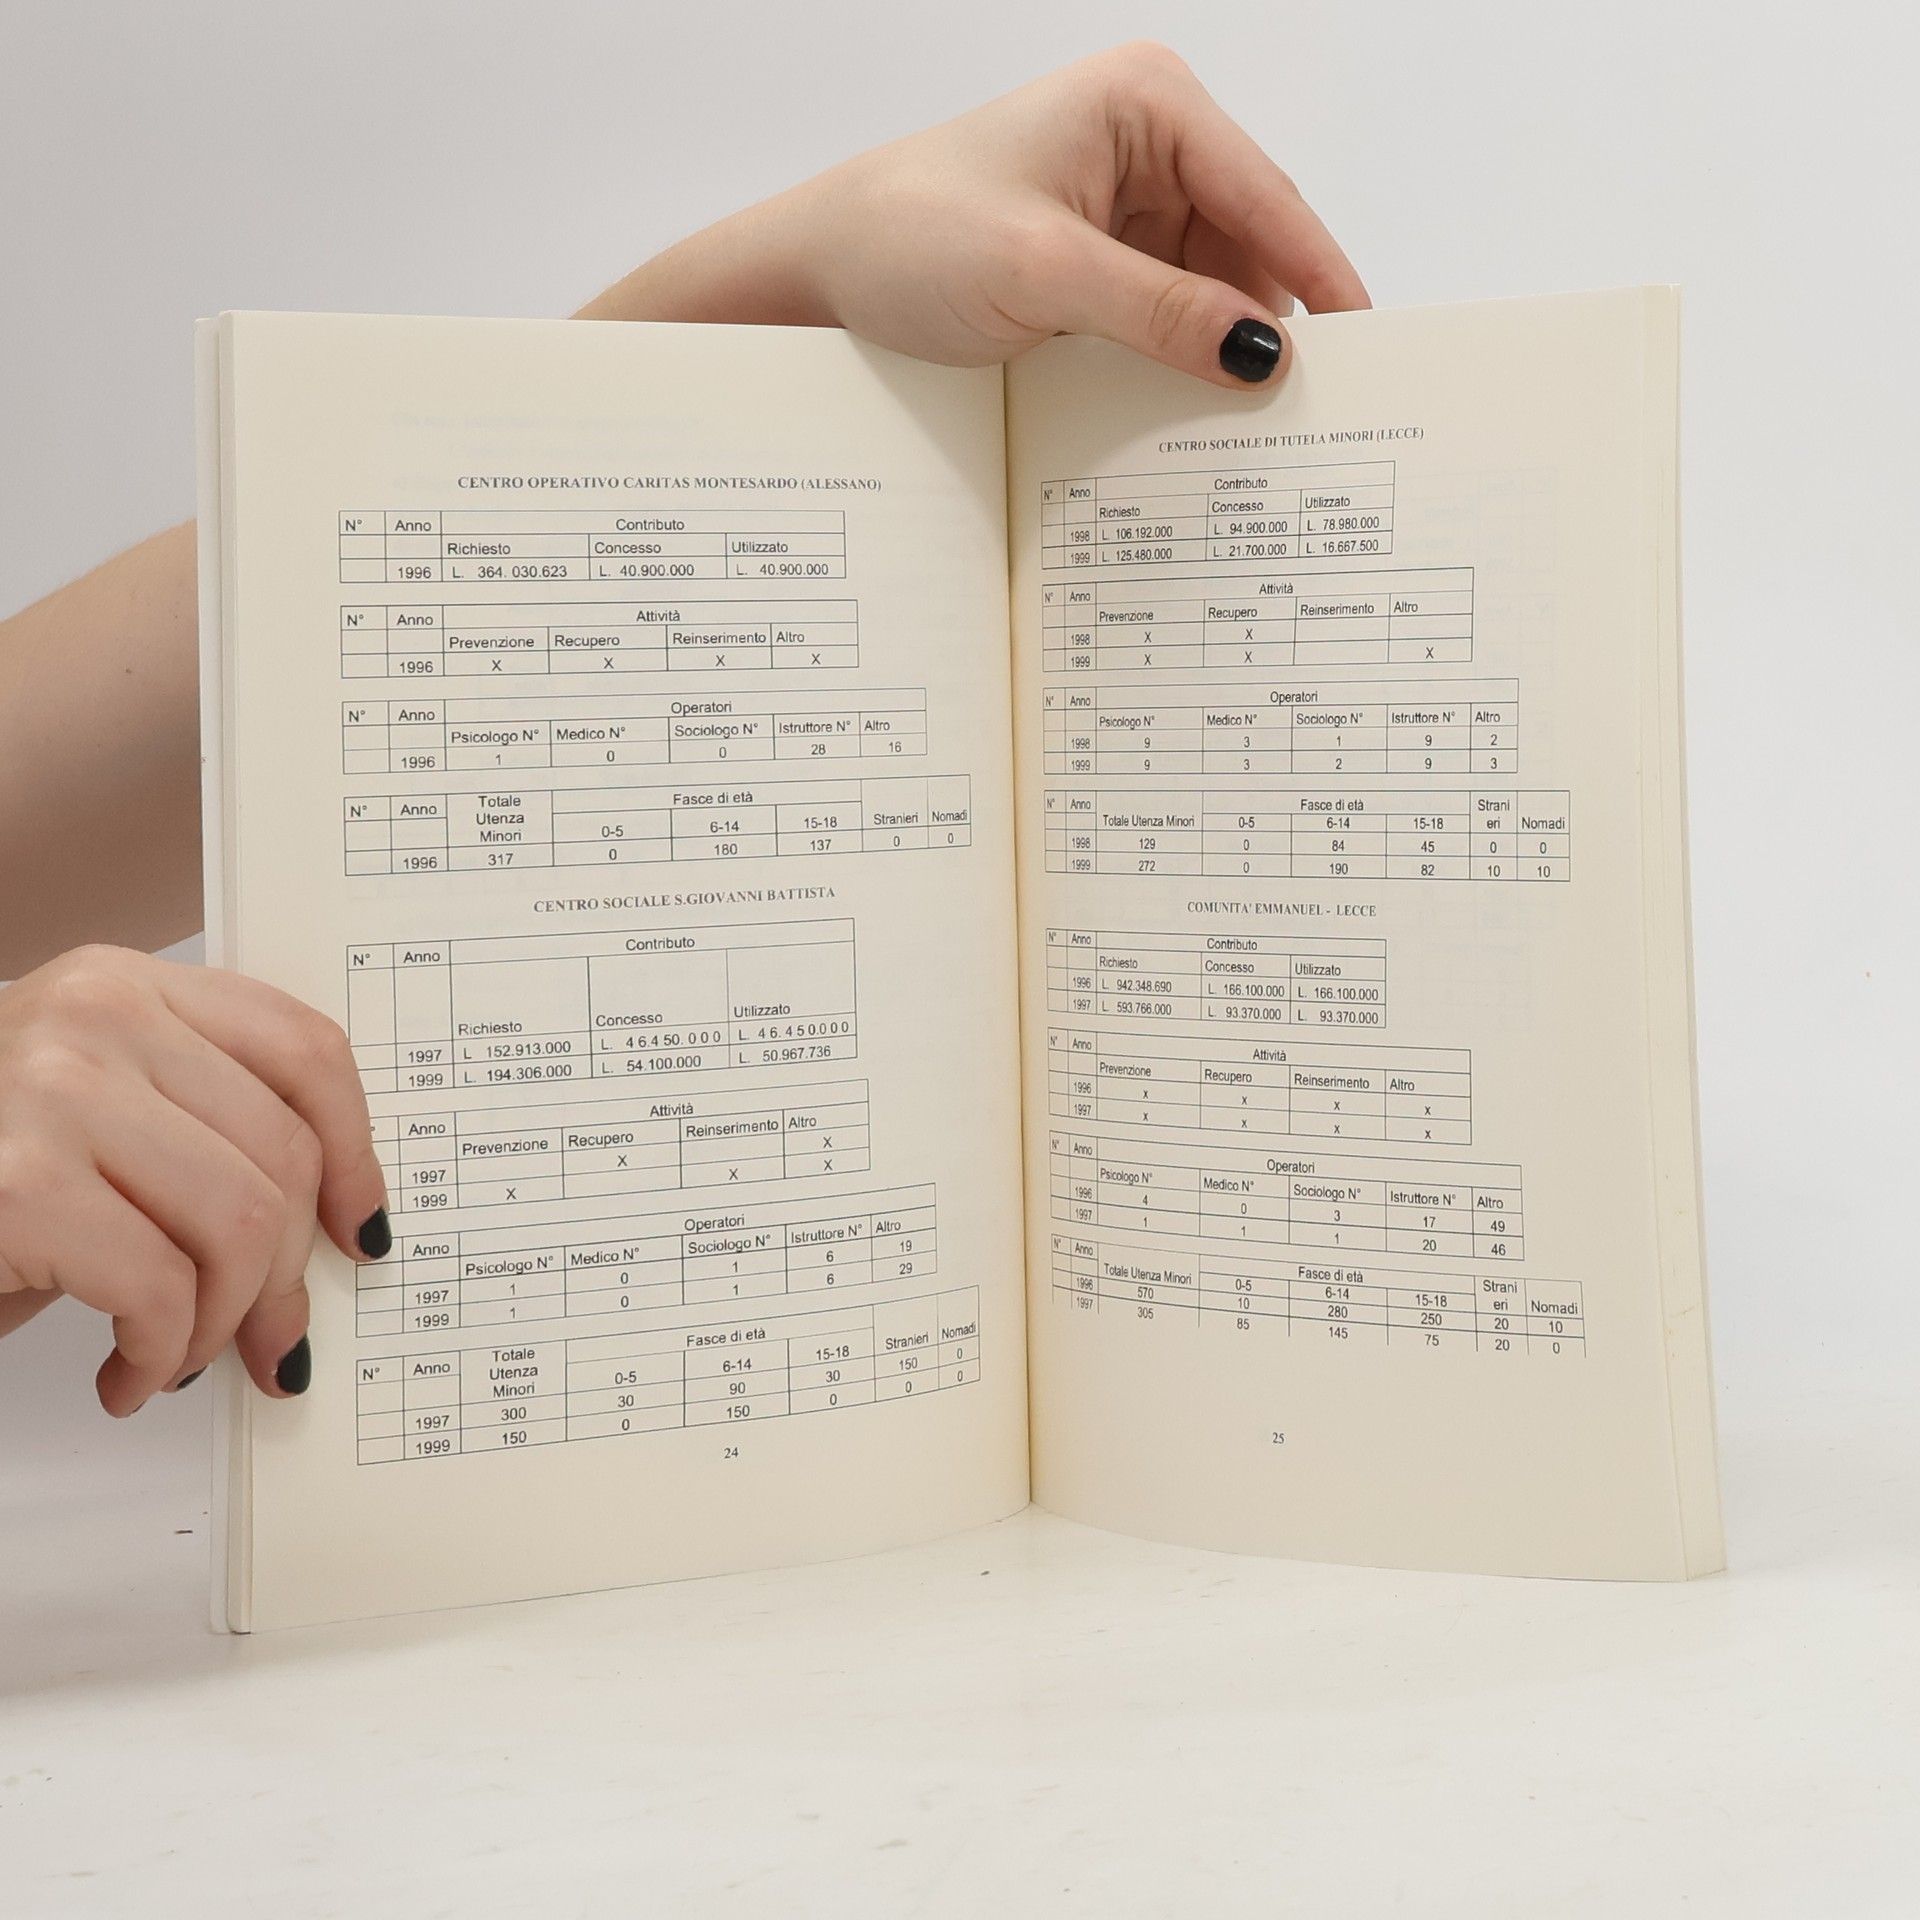 CENTRO OPERATIVO CARITAS MONTESARDO (ALESSANO)
N° Anno Contributo
Richiesto Concesso Utilizzato
1996 L. 364. 030.623 L. 40.900.000 L. 40.900.000
N° Anno Attività
Prevenzione Recupero Reinserimento Altro
1996 X X X X
N° Anno Operatori
Psicologo N° Medico N° Sociologo N° Istruttore N° Altro
1996 1 0 0 28 16
N° Anno Totale Utenza Minori Fasce di età Stranieri Nomadi
0-5 6-14 15-18
1996 317 0 180 137 0 0
CENTRO SOCIALE S.GIOVANNI BATTISTA
N° Anno Contributo
Richiesto Concesso Utilizzato
1997 L 152.913.000 L. 46.450.000 L. 46.450.000
1999 L. 194.306.000 L. 54.100.000 L. 50.967.736
Anno Attività
Prevenzione Recupero Reinserimento Altro
1997 X X
1999 X X X
Anno Operatori
Psicologo N° Medico N° Sociologo N° Istruttore N° Altro
1997 1 0 1 6 19
1999 1 0 1 6 29
N° Anno Totale Utenza Minori Fasce di età Stranieri Nomadi
0-5 6-14 15-18
1997 300 30 90 30 150 0
1999 150 0 150 0 0 0
24
CENTRO SOCIALE DI TUTELA MINORI (LECCE)
N° Anno Contributo
Richiesto Concesso Utilizzato
1998 L. 106.192.000 L. 94.900.000 L. 78.980.000
1999 L. 125.480.000 L. 21.700.000 L. 16.667.500
N° Anno Attività
Prevenzione Recupero Reinserimento Altro
1998 X X
1999 X X X
N° Anno Operatori
Psicologo N° Medico N° Sociologo N° Istruttore N° Altro
1998 9 3 1 9 2
1999 9 3 2 9 3
N° Anno Fasce di età Strani
Totale Utenza Minori 0-5 6-14 15-18 eri Nomadi
1998 129 0 84 45 0 0
1999 272 0 190 82 10 10
COMUNITA' EMMANUEL - LECCE
N° Anno Contributo
Richiesto Concesso Utilizzato
1996 L 942.348.690 L. 166.100.000 L. 166.100.000
1997 L 593.766.000 L. 93.370.000 L. 93.370.000
N° Anno Attività
Prevenzione Recupero Reinserimento Altro
1996 x x x x
1997 x x x x
N° Anno Operatori
Psicologo N° Medico N° Sociologo N° Istruttore N° Altro
1996 4 0 3 17 49
1997 1 1 1 20 46
N° Anno Fasce di età Strani
Totale Utenza Minori 0-5 6-14 15-18 eri Nomadi
1996 570 10 280 250 20 10
1997 305 85 145 75 20 0
25